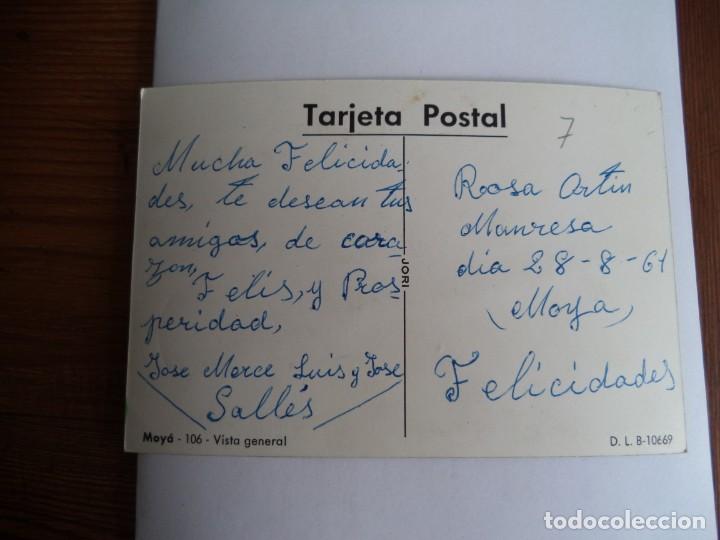 Tarjeta Postal
7
Mucha Felicida-
des, te desean tus
amigos, de cora-
zon,
Felis, y Pros-
peridad,
Jose Merce Luis y Jose
Sallés
JORI
Rosa Ortin
Manresa
dia 28-8-61
(Moya)
Felicidades
Moyá - 106 - Vista general
D. L. B-10669
todocoleccion
todocoleccion.net